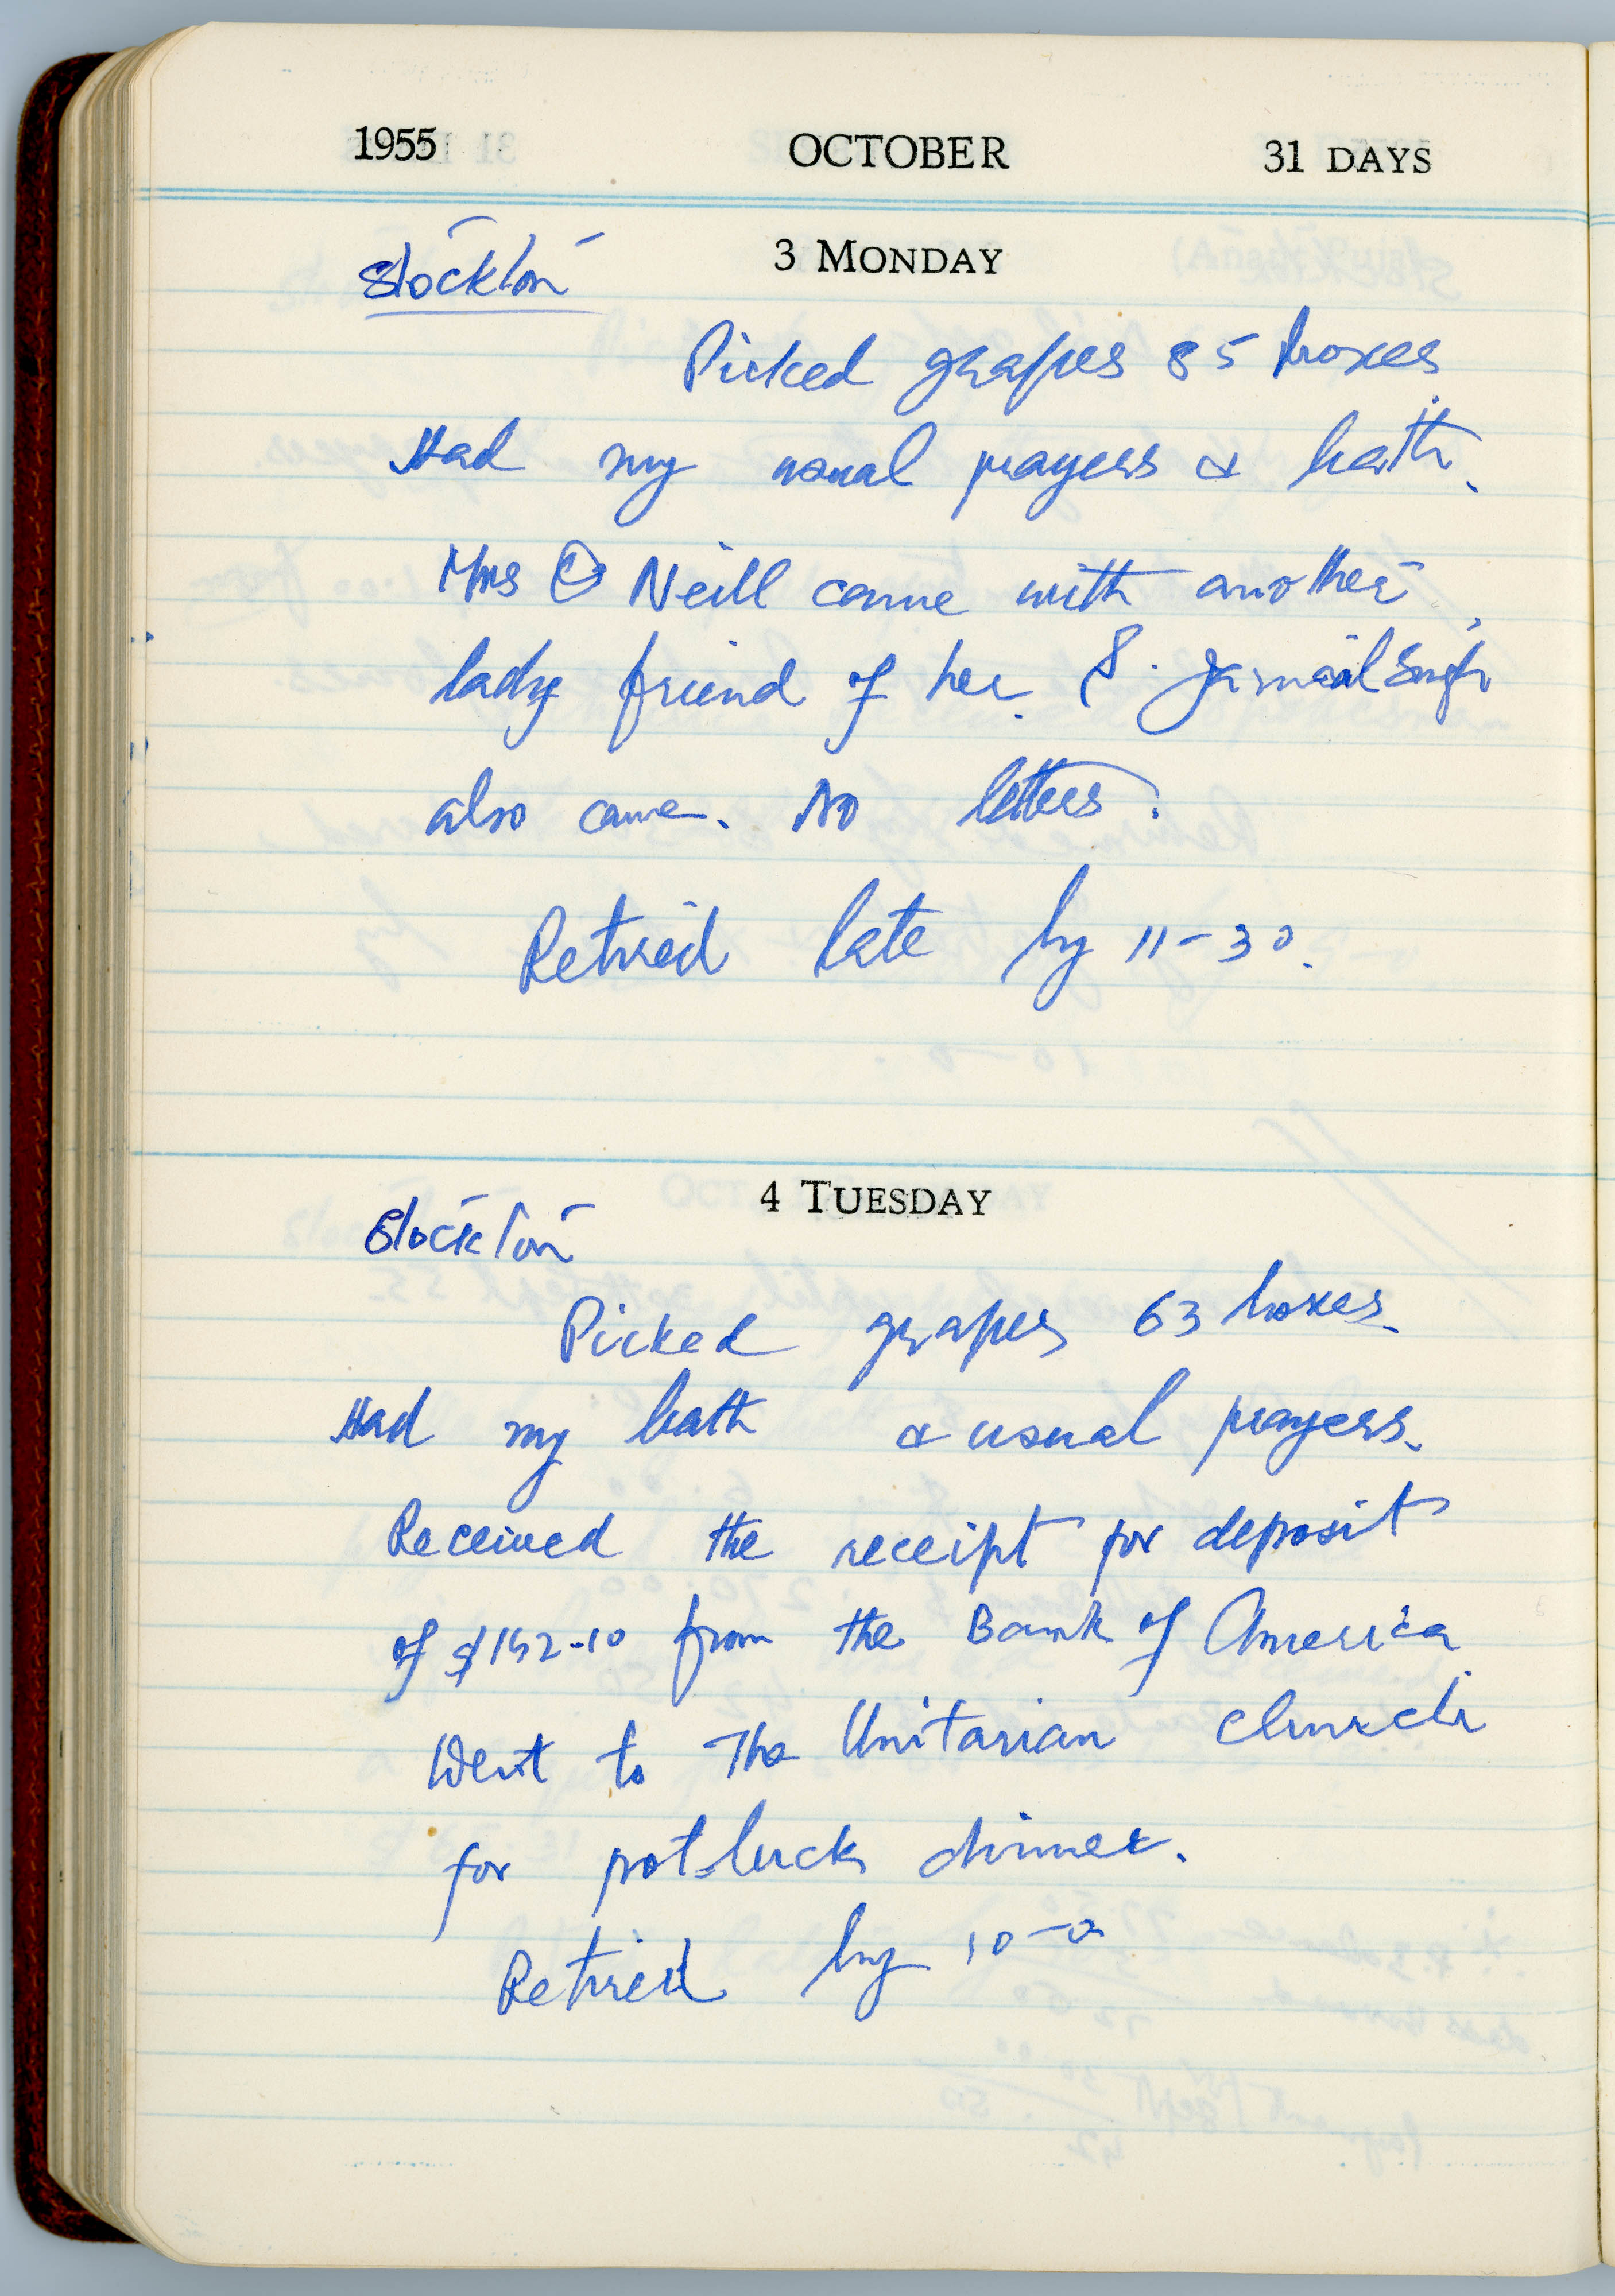 1955 OCTOBER 31 DAYS
3 MONDAY
Stockton
Picked grapes 85 boxes
Had my usual prayers & bath.
Mrs O Neill came with another
lady friend of her. S. Jarnail Singh
also came. No letters.
Retired late by 11-30.
4 TUESDAY
Stockton
Picked grapes 63 boxes.
Had my bath & usual prayers.
Received the receipt for deposit
of from the Bank of America
Went to The Unitarian church
for pot-luck dinner.
Retired by 10-0